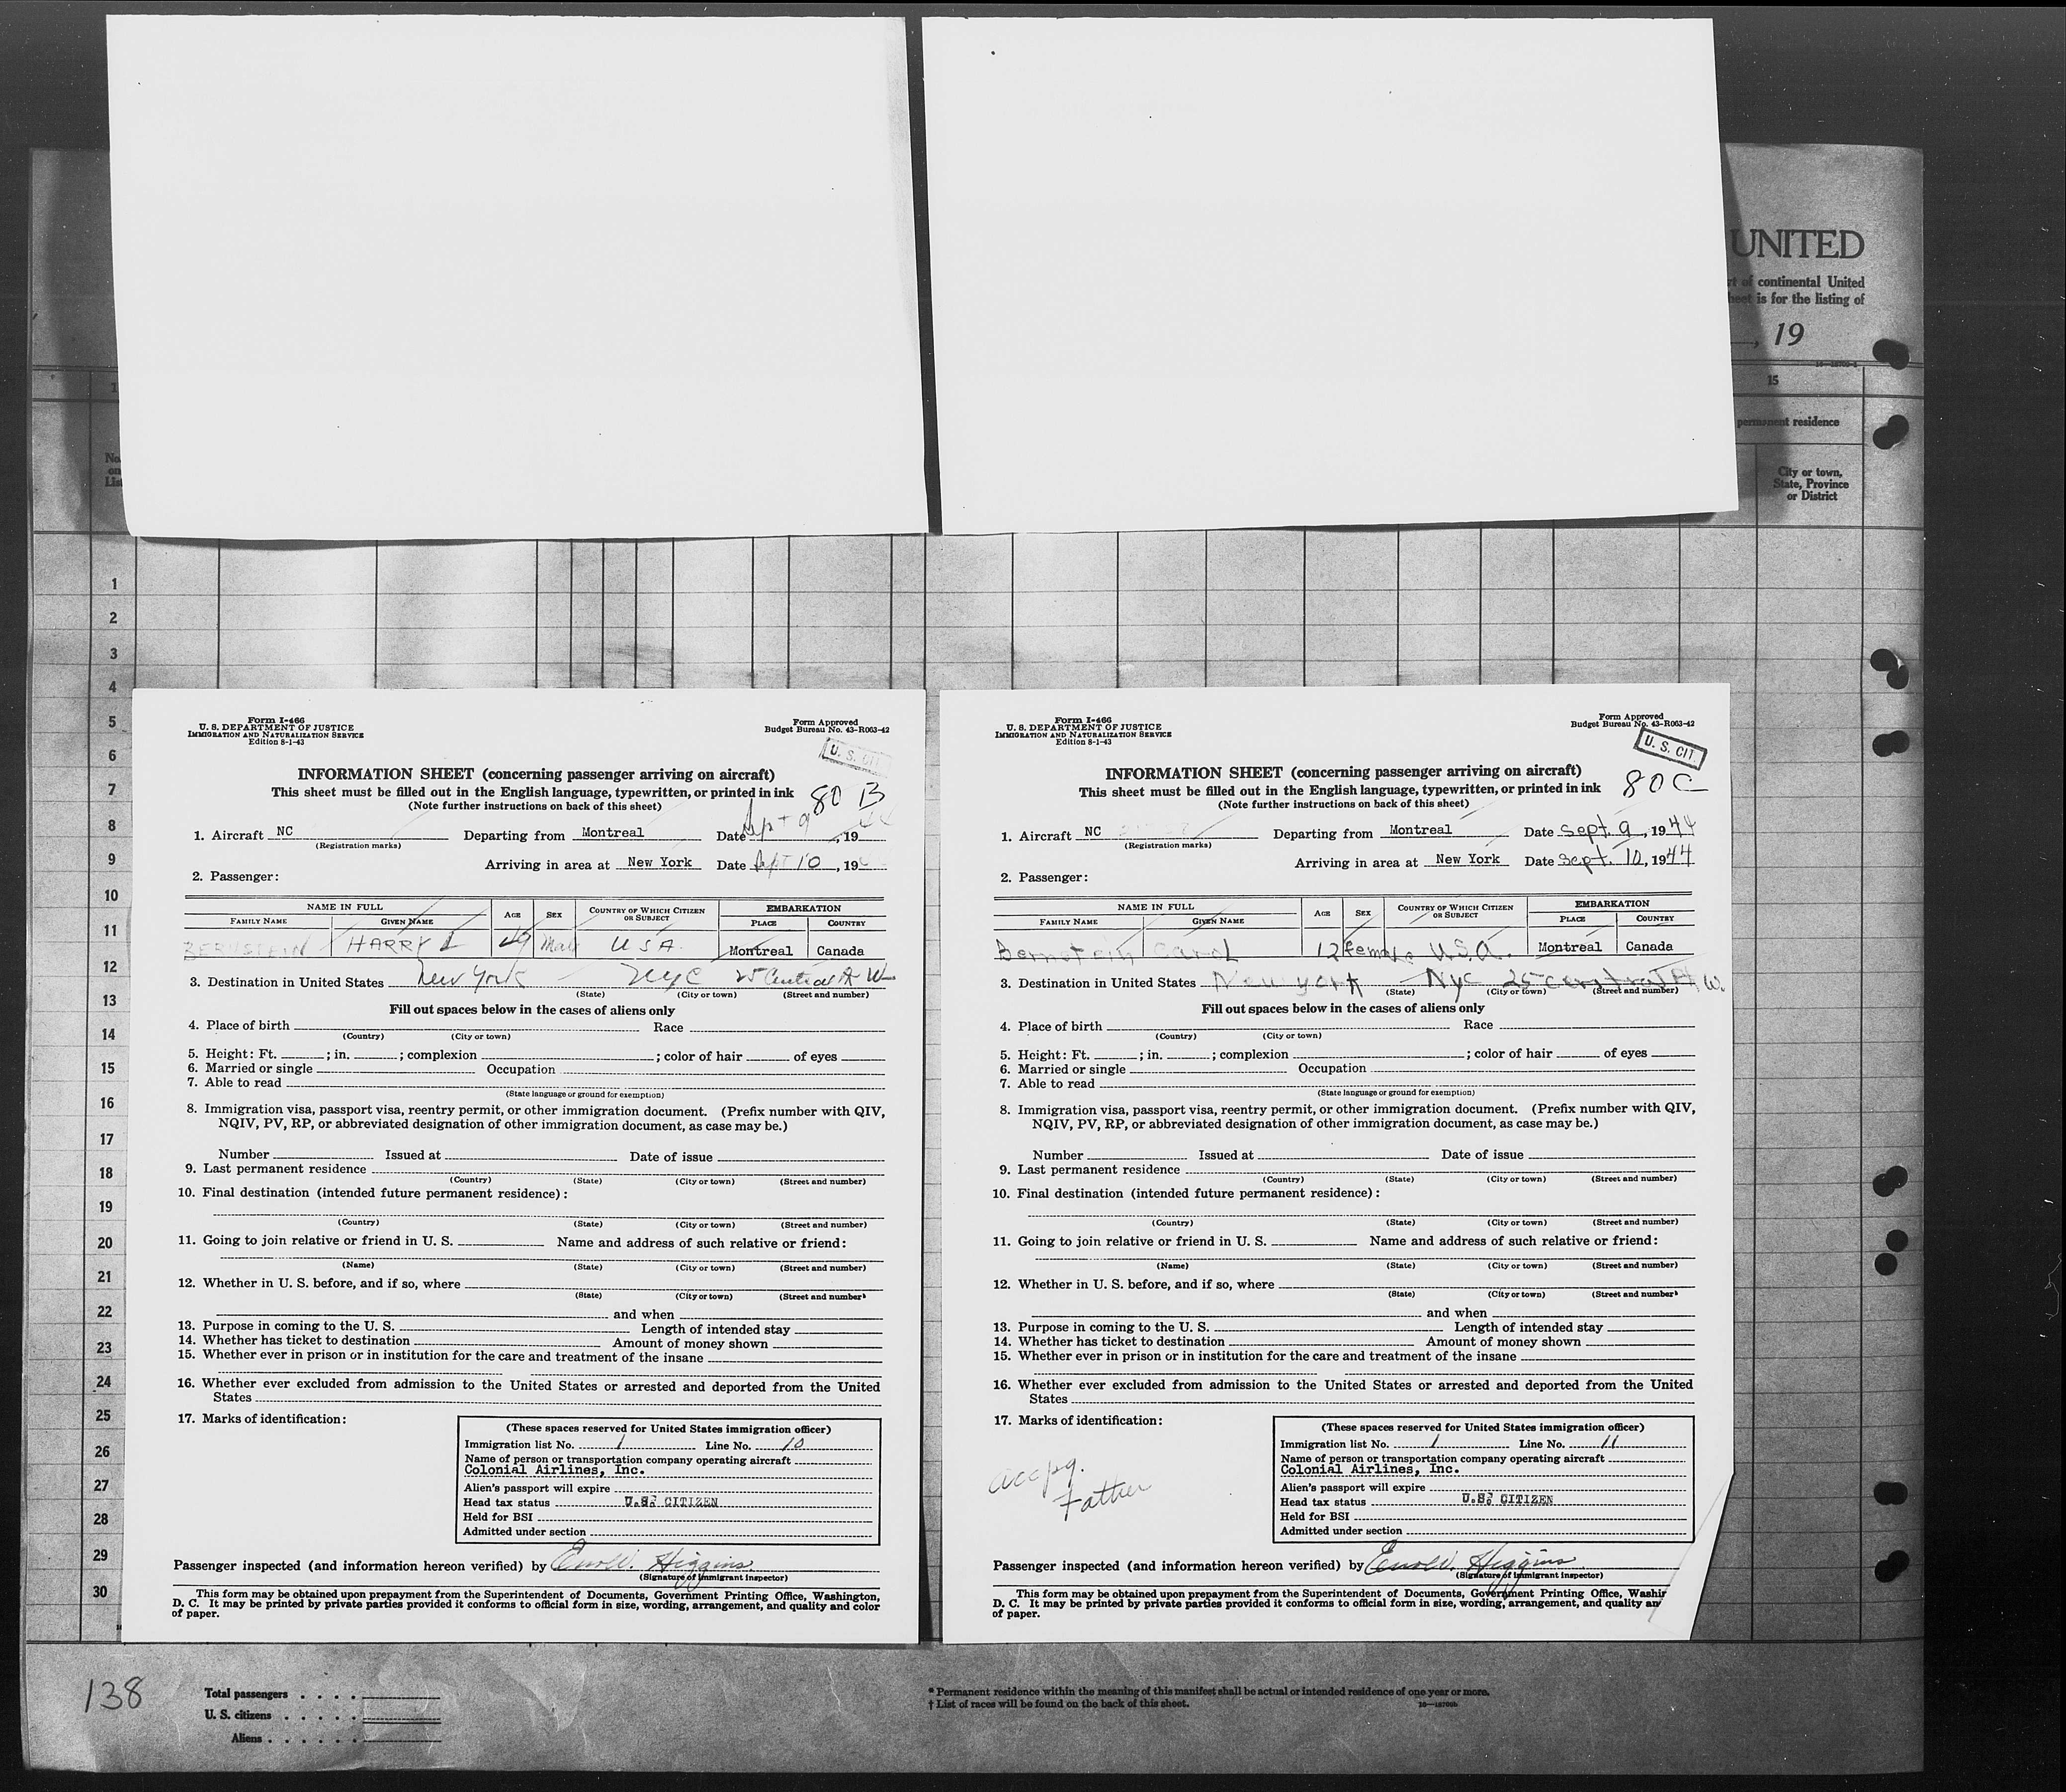 UNITED
of continental United
is for the listing of
, 19
15
permanent residence
City or town,
State, Province
or District
No.
on
List
1
2
3
4
5
6
7
8
9
10
11
12
13
14
15
16
17
18
19
20
21
22
23
24
25
26
27
28
29
30
Form I-466
U. S. DEPARTMENT OF JUSTICE
IMMIGRATION AND NATURALIZATION SERVICE
Edition 8-1-43
Form Approved
Budget Bureau No. 43-R063-42
U. S. CIT.
INFORMATION SHEET (concerning passenger arriving on aircraft)
This sheet must be filled out in the English language, typewritten, or printed in ink
80 B
(Note further instructions on back of this sheet)
1. Aircraft NC Departing from Montreal Date Sept 9, 19
(Registration marks)
Arriving in area at New York Date Sept 10, 19
2. Passenger:
NAME IN FULL AGE SEX COUNTRY OF WHICH CITIZEN OR SUBJECT EMBARKATION
FAMILY NAME GIVEN NAME PLACE COUNTRY
BERNSTEIN HARRY I 49 Male USA Montreal Canada
3. Destination in United States New York NYC 25 Central Pk W
(State) (City or town) (Street and number)
Fill out spaces below in the cases of aliens only
4. Place of birth Race
(Country) (City or town)
5. Height: Ft. ; in. ; complexion ; color of hair of eyes
6. Married or single Occupation
7. Able to read
(State language or ground for exemption)
8. Immigration visa, passport visa, reentry permit, or other immigration document. (Prefix number with QIV,
NQIV, PV, RP, or abbreviated designation of other immigration document, as case may be.)
Number Issued at Date of issue
9. Last permanent residence
(Country) (State) (City or town) (Street and number)
10. Final destination (intended future permanent residence):
(Country) (State) (City or town) (Street and number)
11. Going to join relative or friend in U. S. Name and address of such relative or friend:
(Name) (State) (City or town) (Street and number)
12. Whether in U. S. before, and if so, where
(State) (City or town) (Street and number)
and when
13. Purpose in coming to the U. S. Length of intended stay
14. Whether has ticket to destination Amount of money shown
15. Whether ever in prison or in institution for the care and treatment of the insane
16. Whether ever excluded from admission to the United States or arrested and deported from the United
States
17. Marks of identification:
(These spaces reserved for United States immigration officer)
Immigration list No. 1 Line No. 10
Name of person or transportation company operating aircraft
Colonial Airlines, Inc.
Alien's passport will expire
Head tax status U.S. CITIZEN
Held for BSI
Admitted under section
Passenger inspected (and information hereon verified) by Higgins
(Signature of immigrant inspector)
This form may be obtained upon prepayment from the Superintendent of Documents, Government Printing Office, Washington,
D. C. It may be printed by private parties provided it conforms to official form in size, wording, arrangement, and quality and color
of paper.
Form I-466
U. S. DEPARTMENT OF JUSTICE
IMMIGRATION AND NATURALIZATION SERVICE
Edition 8-1-43
Form Approved
Budget Bureau No. 43-R063-42
U. S. CIT.
INFORMATION SHEET (concerning passenger arriving on aircraft)
This sheet must be filled out in the English language, typewritten, or printed in ink
80 C
(Note further instructions on back of this sheet)
1. Aircraft NC Departing from Montreal Date Sept. 9, 1944
(Registration marks)
Arriving in area at New York Date Sept. 10, 1944
2. Passenger:
NAME IN FULL AGE SEX COUNTRY OF WHICH CITIZEN OR SUBJECT EMBARKATION
FAMILY NAME GIVEN NAME PLACE COUNTRY
Bernstein Carol 12 female U.S.A. Montreal Canada
3. Destination in United States New York NYC 25 Central Pk W.
(State) (City or town) (Street and number)
Fill out spaces below in the cases of aliens only
4. Place of birth Race
(Country) (City or town)
5. Height: Ft. ; in. ; complexion ; color of hair of eyes
6. Married or single Occupation
7. Able to read
(State language or ground for exemption)
8. Immigration visa, passport visa, reentry permit, or other immigration document. (Prefix number with QIV,
NQIV, PV, RP, or abbreviated designation of other immigration document, as case may be.)
Number Issued at Date of issue
9. Last permanent residence
(Country) (State) (City or town) (Street and number)
10. Final destination (intended future permanent residence):
(Country) (State) (City or town) (Street and number)
11. Going to join relative or friend in U. S. Name and address of such relative or friend:
(Name) (State) (City or town) (Street and number)
12. Whether in U. S. before, and if so, where
(State) (City or town) (Street and number)
and when
13. Purpose in coming to the U. S. Length of intended stay
14. Whether has ticket to destination Amount of money shown
15. Whether ever in prison or in institution for the care and treatment of the insane
16. Whether ever excluded from admission to the United States or arrested and deported from the United
States
17. Marks of identification:
accpg.
Father
(These spaces reserved for United States immigration officer)
Immigration list No. 1 Line No. 11
Name of person or transportation company operating aircraft
Colonial Airlines, Inc.
Alien's passport will expire
Head tax status U.S. CITIZEN
Held for BSI
Admitted under section
Passenger inspected (and information hereon verified) by Higgins
(Signature of immigrant inspector)
This form may be obtained upon prepayment from the Superintendent of Documents, Government Printing Office, Washin
D. C. It may be printed by private parties provided it conforms to official form in size, wording, arrangement, and quality an
of paper.
138
Total passengers . . . .
U. S. citizens . . . . .
Aliens . . . . . .
* Permanent residence within the meaning of this manifest shall be actual or intended residence of one year or more.
† List of races will be found on the back of this sheet.